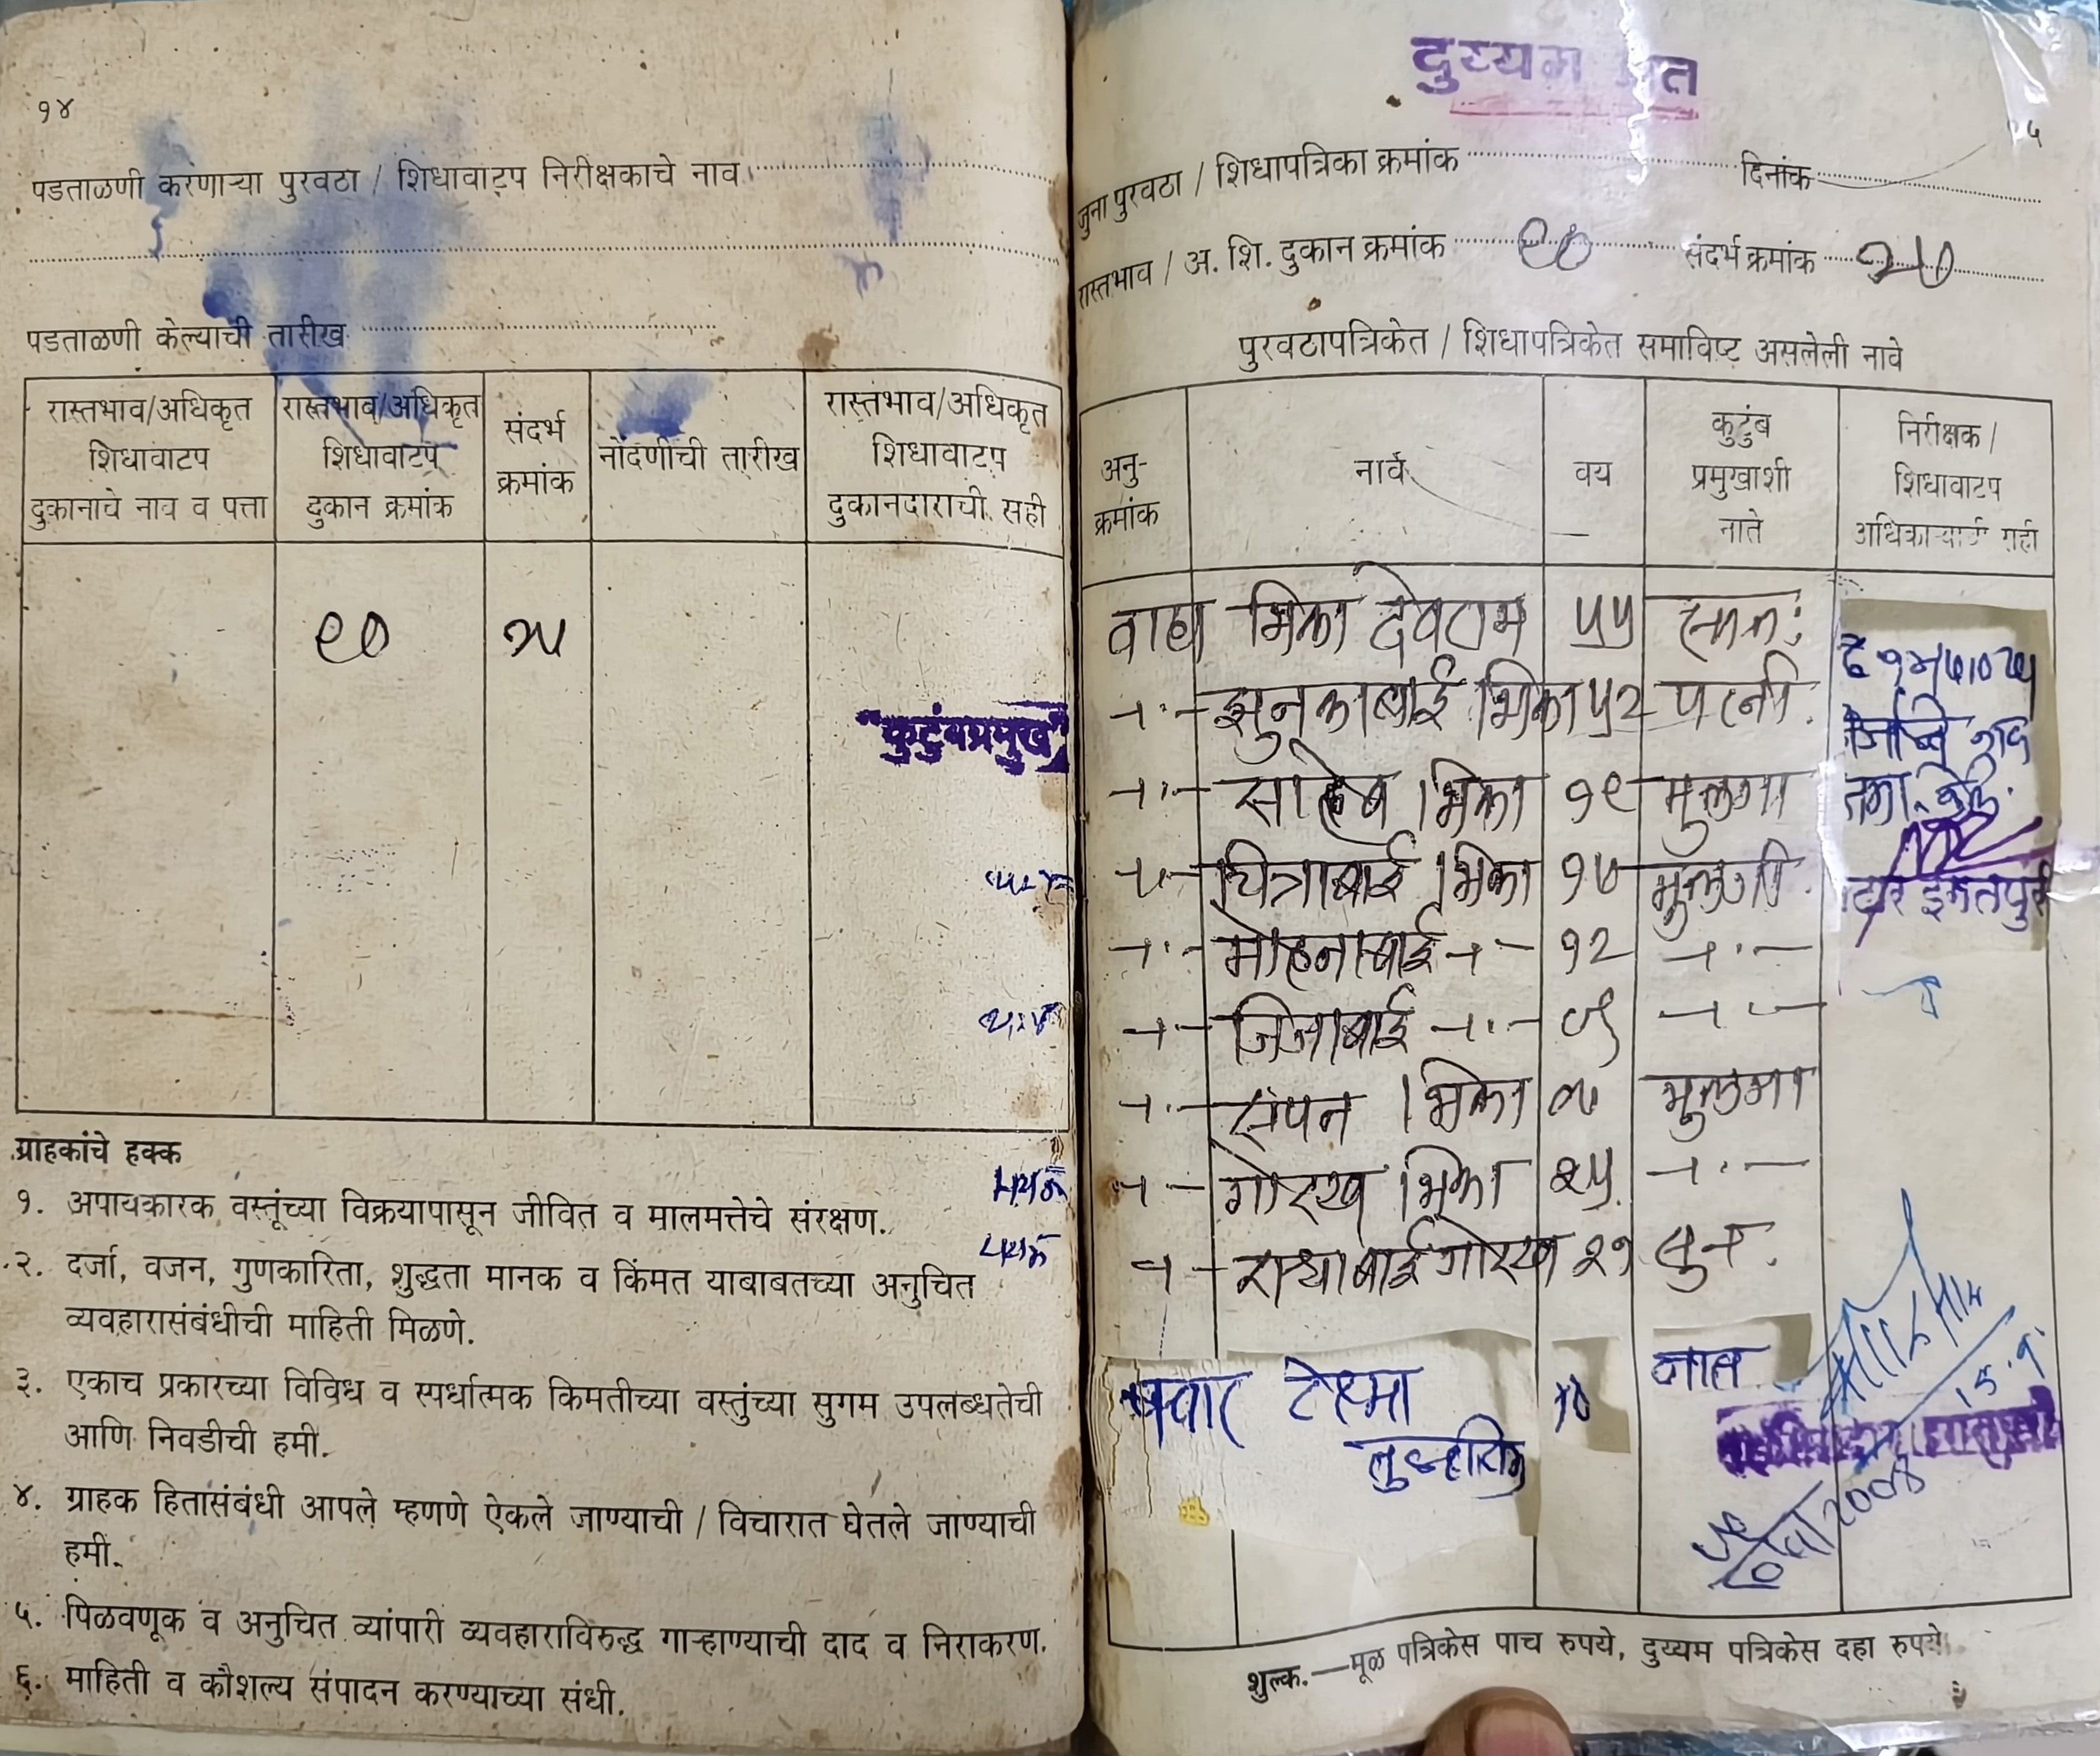 १४
पडताळणी करणाऱ्या पुरवठा / शिधावाटप निरीक्षकाचे नाव
पडताळणी केल्याची तारीख
रास्तभाव/अधिकृत शिधावाटप दुकानाचे नाव व पत्ता
रास्तभाव/अधिकृत शिधावाटप दुकान क्रमांक
संदर्भ क्रमांक
नोंदणीची तारीख
रास्तभाव/अधिकृत शिधावाटप दुकानदाराची सही
९०
"कुटुंबप्रमुख"
ग्राहकांचे हक्क
१. अपायकारक वस्तूंच्या विक्रयापासून जीवित व मालमत्तेचे संरक्षण.
२. दर्जा, वजन, गुणकारिता, शुद्धता मानक व किंमत याबाबतच्या अनुचित
व्यवहारासंबंधीची माहिती मिळणे.
३. एकाच प्रकारच्या विविध व स्पर्धात्मक किमतीच्या वस्तुंच्या सुगम उपलब्धतेची
आणि निवडीची हमी.
४. ग्राहक हितासंबंधी आपले म्हणणे ऐकले जाण्याची / विचारात घेतले जाण्याची
हमी.
५. पिळवणूक व अनुचित व्यांपारी व्यवहाराविरुद्ध गाऱ्हाण्याची दाद व निराकरण.
६. माहिती व कौशल्य संपादन करण्याच्या संधी.
दुय्यम प्रत
जुना पुरवठा / शिधापत्रिका क्रमांक दिनांक
रास्तभाव / अ. शि. दुकान क्रमांक ९० संदर्भ क्रमांक
पुरवठापत्रिकेत / शिधापत्रिकेत समाविष्ट असलेली नावे
अनु-क्रमांक
नावे
वय
कुटुंब प्रमुखाशी नाते
निरीक्षक / शिधावाटप अधिकाऱ्याची सही
वाघ भिका देवराम ५५
-"- झुनकाबाई भिका ५२ पत्नी.
-"- साहेब भिका १९ मुलगा
-"- चित्राबाई भिका १७ मुलगी.
-"- मोहनाबाई -"- १२ -"-
-"- जिजाबाई -"- ०९ -"-
-"- संपन भिका मुलगा
-"- गोरख भिका २५ -"-
-"- गोरख २१ सुन.
पवार
नात
शुल्क.—मूळ पत्रिकेस पाच रुपये, दुय्यम पत्रिकेस दहा रुपये